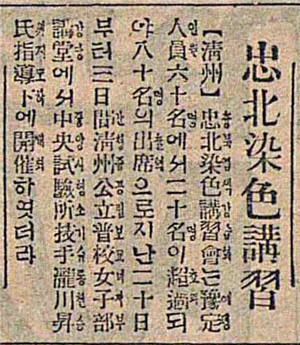 忠北染色講習
【淸州】忠北染色講習會는豫定
人員六十名에서二十名이超過되
야八十名의出席으로지난二十日
부터三日間淸州公立普校女子部
講堂에서中央試驗所技手瀧川昇
氏指導下에開催하엿더라